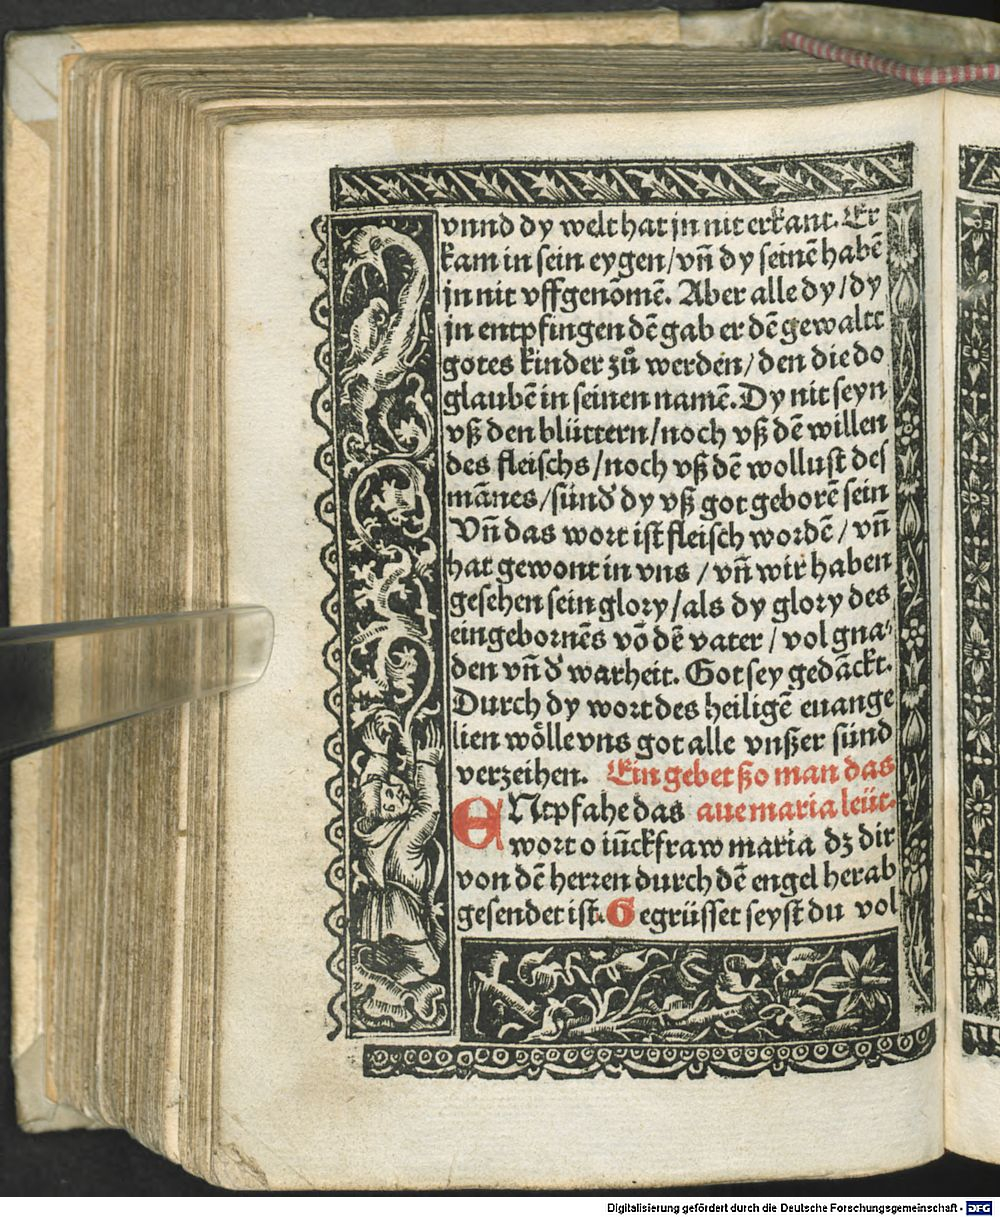 vnnd dy welt hat jn nit erkant. Er
kam in sein eygen/vn̄ dy seinē habē
jn nit vffgenōmē. Aber alle dy/dy
jn entpfingen dē gab er dē gewaltt
gotes kinder zů werden/den die do
glaubē in seinen namē. Dy nit seyn
vß den blüttern/noch vß dē willen
des fleischs/noch vß dē wollust des
mānes/sünd̄ dy vß got geborē sein
Vn̄ das wort ist fleisch wordē/vn̄
hat gewont in vns/vn̄ wir haben
gesehen sein glory/als dy glory des
eingebornēs vō dē vater/vol gna⸗
den vn̄ d̄ warheit. Got sey gedāckt.
Durch dy wort des heiligē euange
lien wölle vns got alle vnßer sünd
verzeihen. Ein gebet ßo man das
ENtpfahe das aue maria leüt.
wort o iūckfraw maria dz dir
von dē herren durch dē engel herab
gesendet ist. Gegrüsset seyst du vol
Digitalisierung gefördert durch die Deutsche Forschungsgemeinschaft - DFG